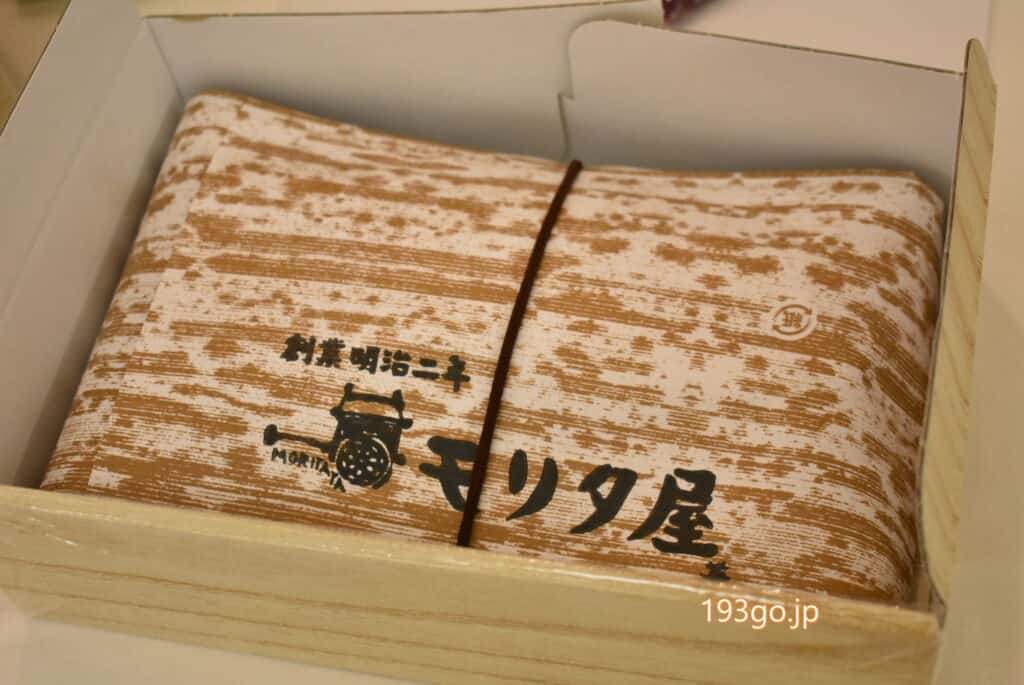 創業明治二年
MORITAYA
モリタ屋
193go.jp